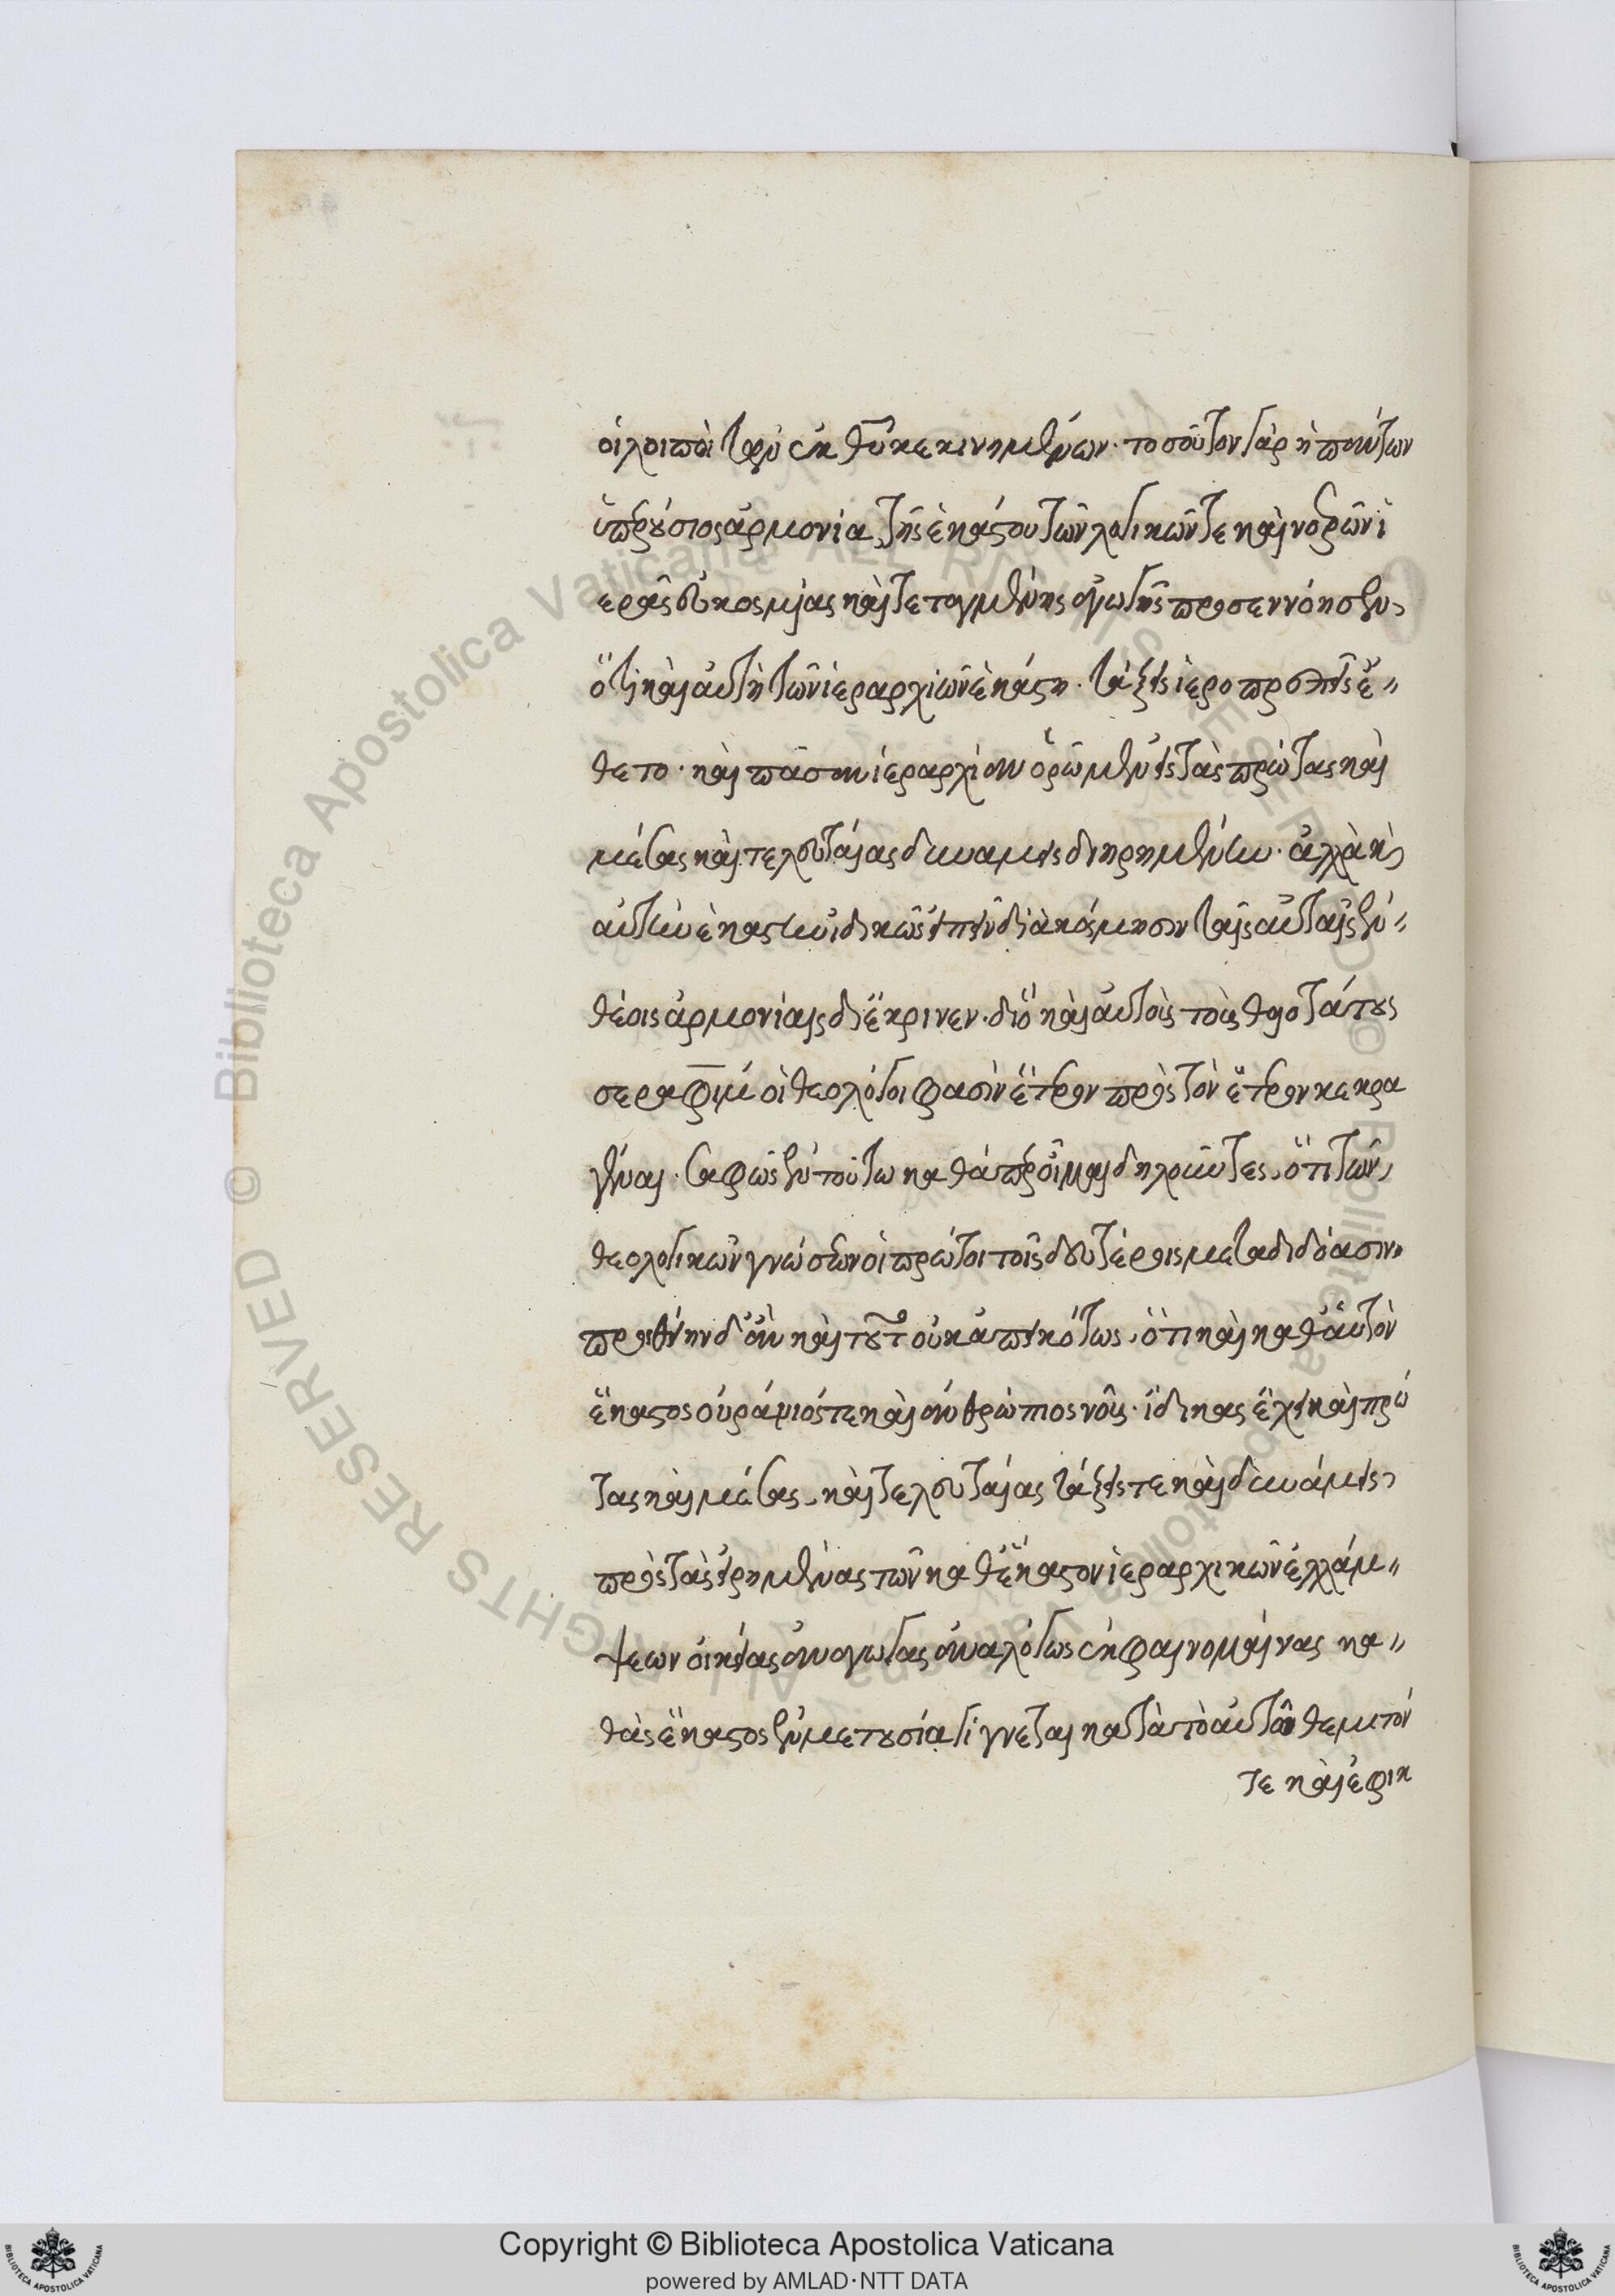 οἱ λοιποὶ τῶν ἐκ θεοῦ κεκινημένων· τοσοῦτον γὰρ ἡ πάντων
ὑπερούσιος ἁρμονία, τῆς ἑκάστου τῶν λογικῶν τε καὶ νοερῶν ἱ
ερᾶς εὐκοσμίας καὶ τεταγμένης ἀγωγῆς προσεννόησεν,
ὅτι καὶ αὐτῇ τῶν ἱεραρχιῶν ἑκάστῃ· τάξεις ἱεροπρεπεῖς ἔ〃
θετο· καὶ πᾶσαν ἱεραρχίαν ὁρῶμεν εἰς τὰς πρώτας καὶ
μέσας καὶ τελευταίας δυνάμεις διῃρημένην· ἀλλὰ κ̀
αὐτὴν ἑκάστην ἰδικῶς εἰπεῖν διακόσμησιν ταῖς αὐταῖς ἐν〃
θέοις ἁρμονίαις διέκρινεν· διὸ καὶ αὐτοὺς τοὺς θειοτάτους
σεραφὶμ οἱ θεολόγοι φασὶν ἕτερον πρὸς τὸν ἕτερον κεκρα
γέναι· σαφῶς ἐν τούτω καθάπερ οἶμαι δηλοῦντες, ὅτι τῶν,
θεολογικῶν γνώσεων οἱ πρῶτοι τοῖς δευτέροις μεταδιδόασιν,
προσθείην δ' ἂν καὶ τοῦτο οὐκ ἀπεικότως, ὅτι καὶ καθ' αὑτὸν
ἕκαστος οὐράνιός τε καὶ ἀνθρώπιος νοῦς· ἰδικὰς ἔχει καὶ πρώ
τας καὶ μέσας, καὶ τελευταίας τάξεις τε καὶ δυνάμεις,
πρὸς τὰς εἰρημένας τῶν καθ' ἕκαστον ἱεραρχικῶν ἐλλάμ〃
ψεων οἰκείας ἀναγωγὰς ἀναλόγως ἐκφαινομαίνας κα〃
θὰς ἕκαστος ἐν μετουσία γίγνεται κατὰ τὸ αὐτῶ θεμιτόν
τε καὶ ἐφικ
Copyright © Biblioteca Apostolica Vaticana
powered by AMLAD·NTT DATA